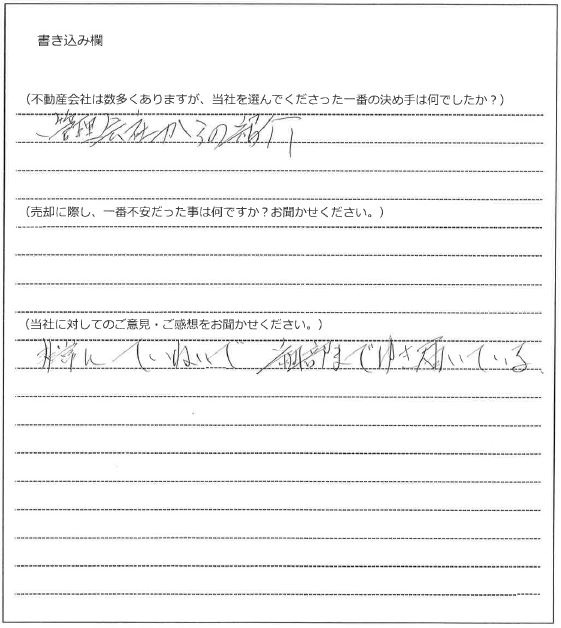 書き込み欄
(不動産会社は数多くありますが、当社を選んでくださった一番の決め手は何でしたか?)
管理会社からの紹介
(売却に際し、一番不安だった事は何ですか?お聞かせください。)
(当社に対してのご意見・ご感想をお聞かせください。)
非常にていねいで 細部までゆき届いている。